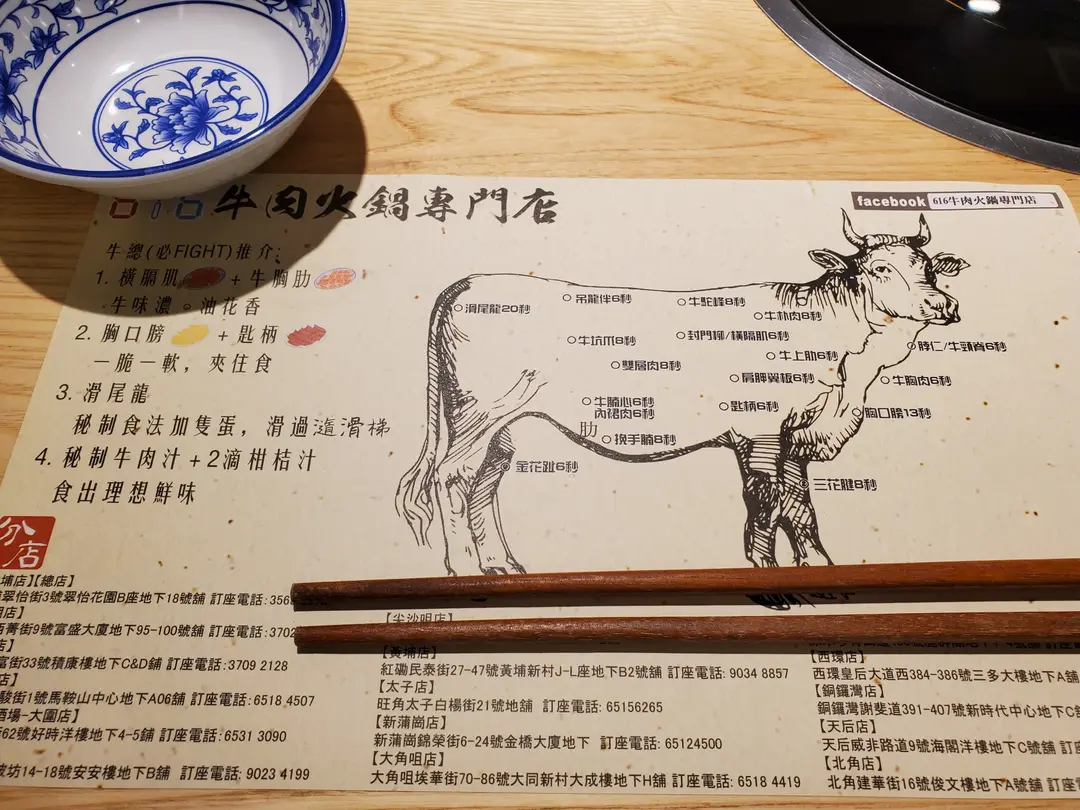 616牛肉火鍋專門店
facebook 616牛肉火鍋專門店
牛總(必FIGHT)推介:
1. 橫膈肌 + 牛胸肋
牛味濃。油花香
2. 胸口膀 + 匙柄
一脆一軟，夾住食
3. 滑尾龍
秘制食法加隻蛋，滑過溜滑梯
4. 秘制牛肉汁+2滴柑桔汁
食出理想鮮味
滑尾龍20秒
吊龍伴6秒
牛駝峰8秒
牛朴肉8秒
牛坑爪8秒
封門柳/橫膈肌6秒
脖仁/牛頸脊6秒
牛上肋6秒
雙層肉8秒
肩胛翼板6秒
牛胸肉6秒
牛腩心6秒
內裙肉6秒
匙柄6秒
胸口膀13秒
肋
挽手腩8秒
金花趾6秒
三花腱8秒
分店
埔店】【總店】
翠怡街3號翠怡花園B座地下18號舖 訂座電話:356
店】
菁街9號富盛大廈地下95-100號舖 訂座電話:3702
店】
富街33號積康樓地下C&D鋪 訂座電話:3709 2128
店】
駿街1號馬鞍山中心地下A06舖 訂座電話:6518 4507
酒場-大圍店】
街62號好時洋樓地下4-5鋪 訂座電話:6531 3090
坊14-18號安安樓地下B舖 訂座電話:9023 4199
【尖沙咀店】
【黃埔店】
紅磡民泰街27-47號黃埔新村J-L座地下B2號舖 訂座電話:9034 8857
【太子店】
旺角太子白楊街21號地舖 訂座電話:65156265
【新蒲崗店】
新蒲崗錦榮街6-24號金橋大廈地下 訂座電話:65124500
【大角咀店】
大角咀埃華街70-86號大同新村大成樓地下H舖 訂座電話:6518 4419
【西環店】
西環皇后大道西384-386號三多大樓地下A舖
【銅鑼灣店】
銅鑼灣謝斐道391-407號新時代中心地下C
【天后店】
天后威非路道9號海閣洋樓地下C號舖 訂
【北角店】
北角建華街16號俊文樓地下A號舖 訂